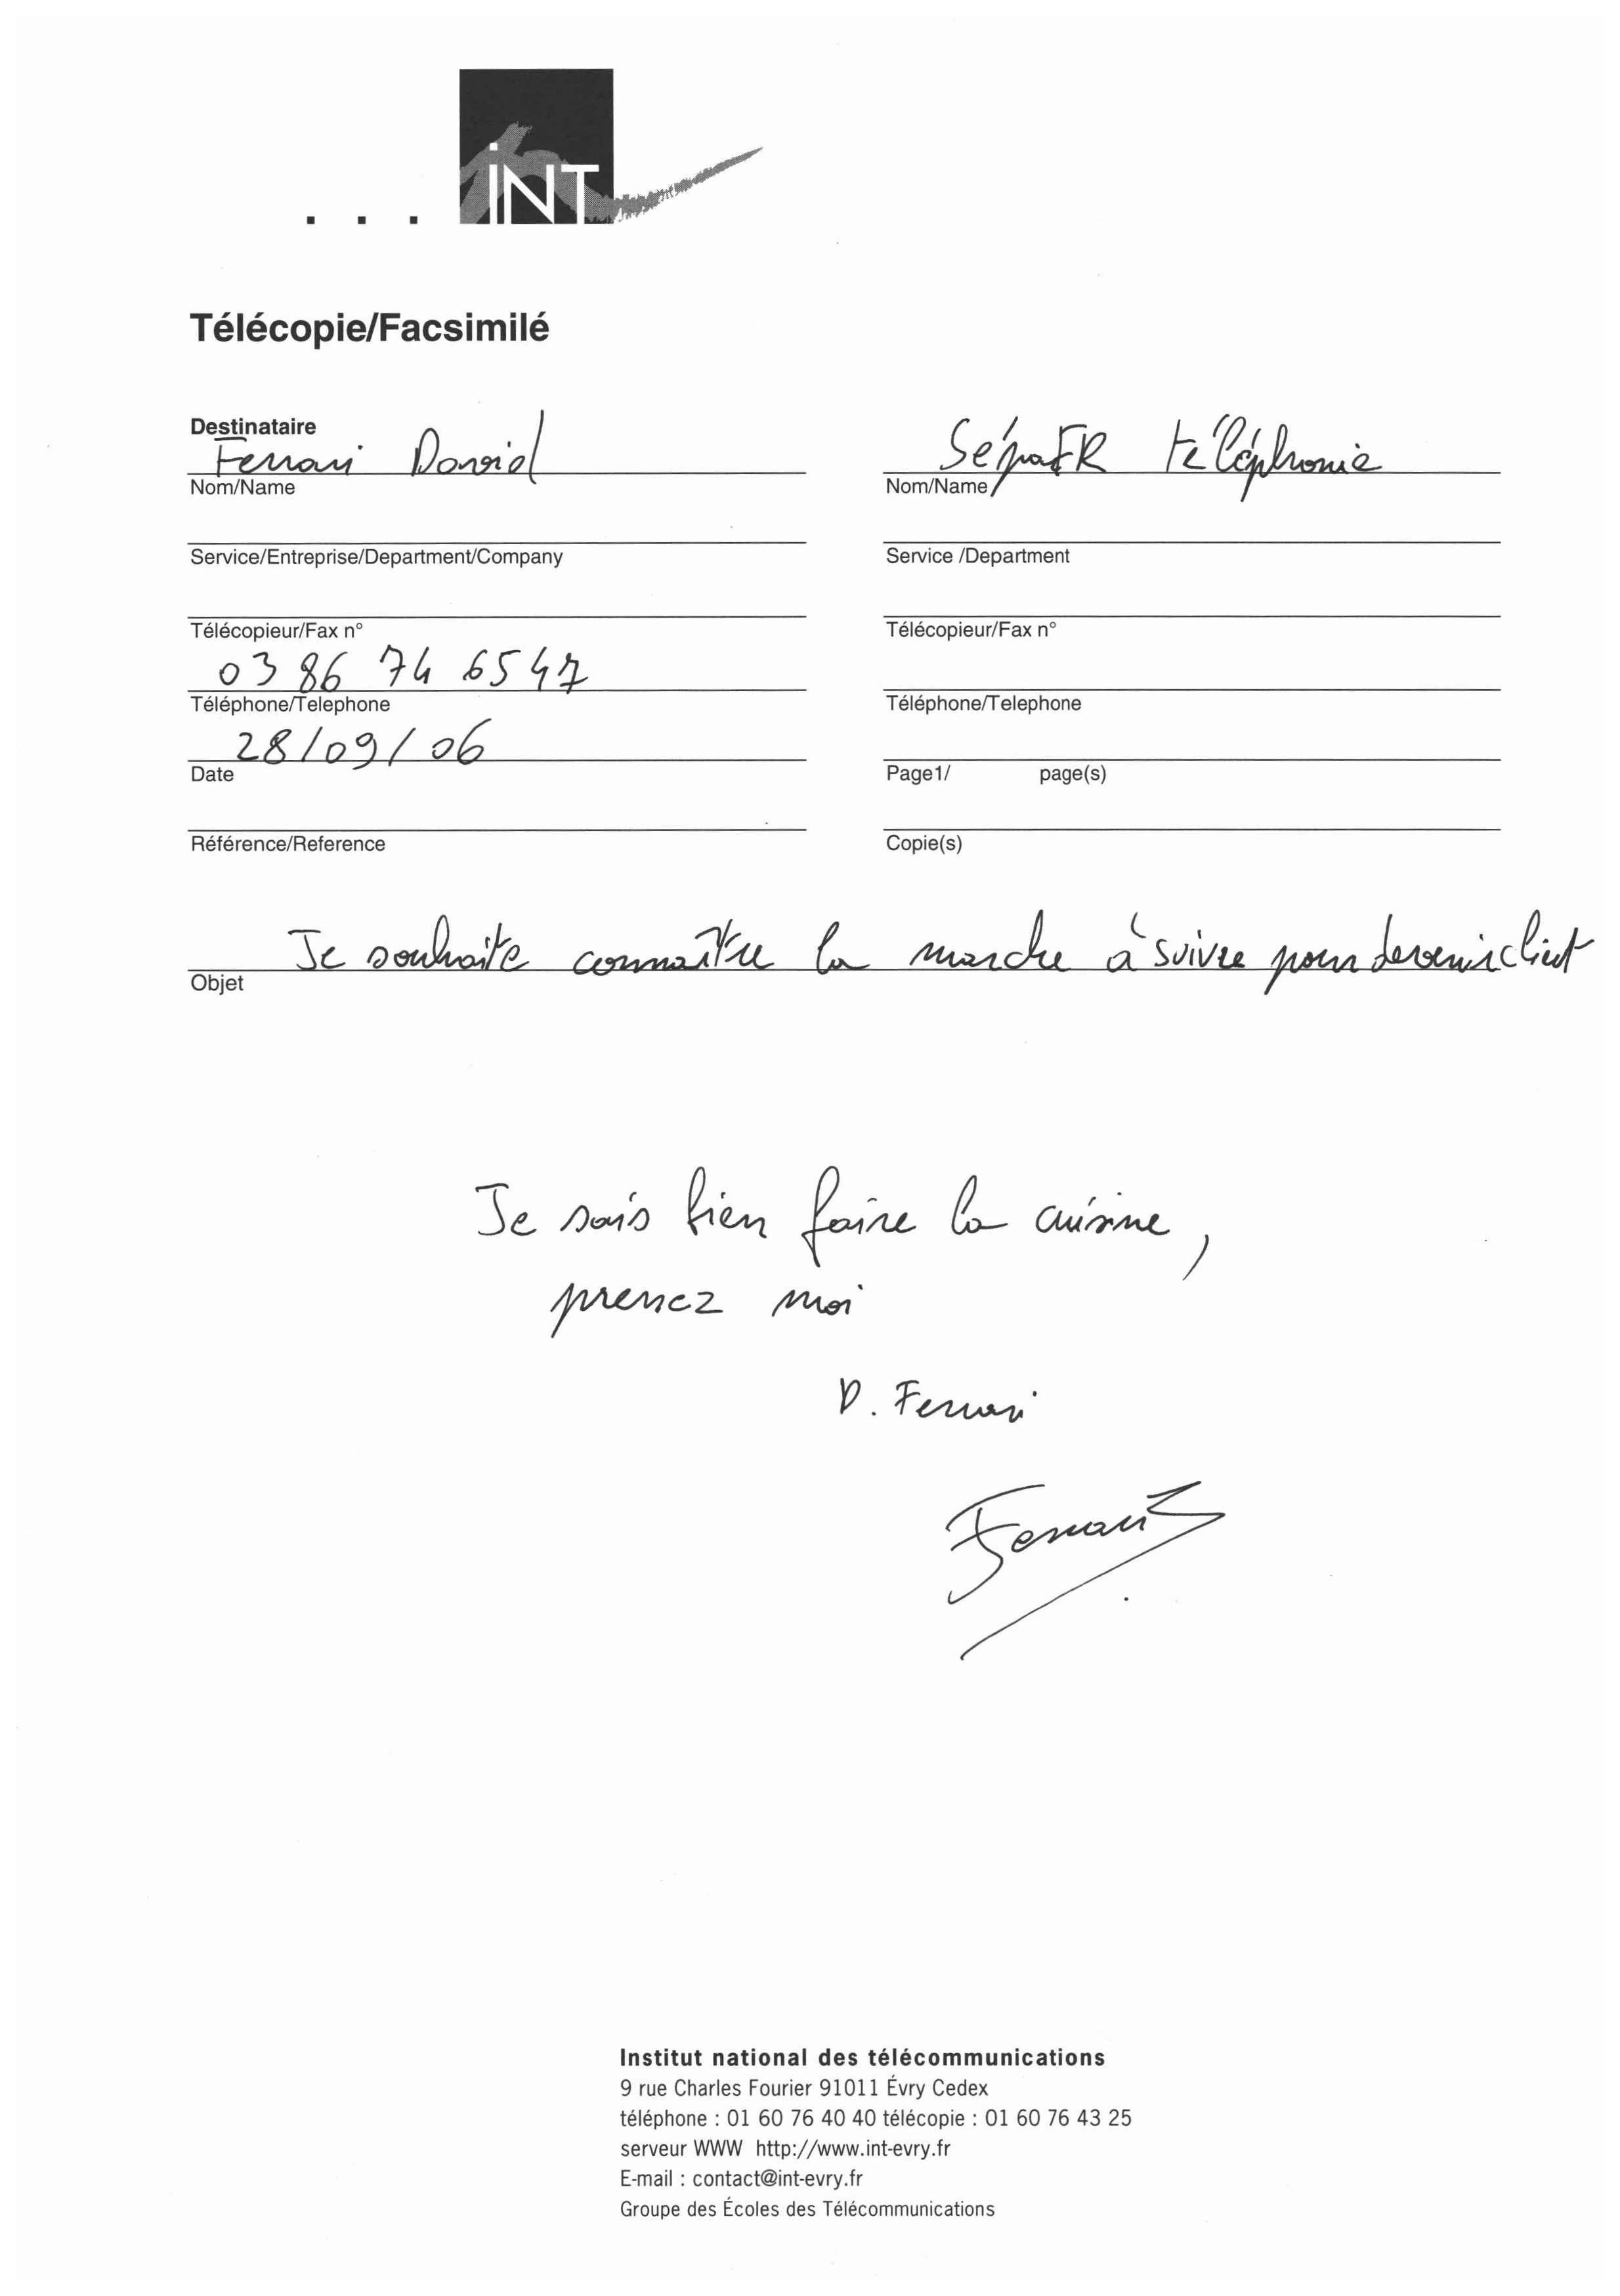 ... iNT
Télécopie/Facsimilé
Destinataire
Ferrari David
Nom/Name
Service/Entreprise/Department/Company
Télécopieur/Fax n°
03 86 74 65 47
Téléphone/Telephone
28/09/06
Date
Référence/Reference
SépaFR téléphonie
Nom/Name
Service /Department
Télécopieur/Fax n°
Téléphone/Telephone
Page1/ page(s)
Copie(s)
Je souhaite connaître la marche à suivre pour devenir client
Objet
Je sais bien faire la cuisine,
prenez moi
D. Ferrari
Ferrari
Institut national des télécommunications
9 rue Charles Fourier 91011 Évry Cedex
téléphone : 01 60 76 40 40 télécopie : 01 60 76 43 25
serveur WWW http://www.int-evry.fr
E-mail : contact@int-evry.fr
Groupe des Écoles des Télécommunications